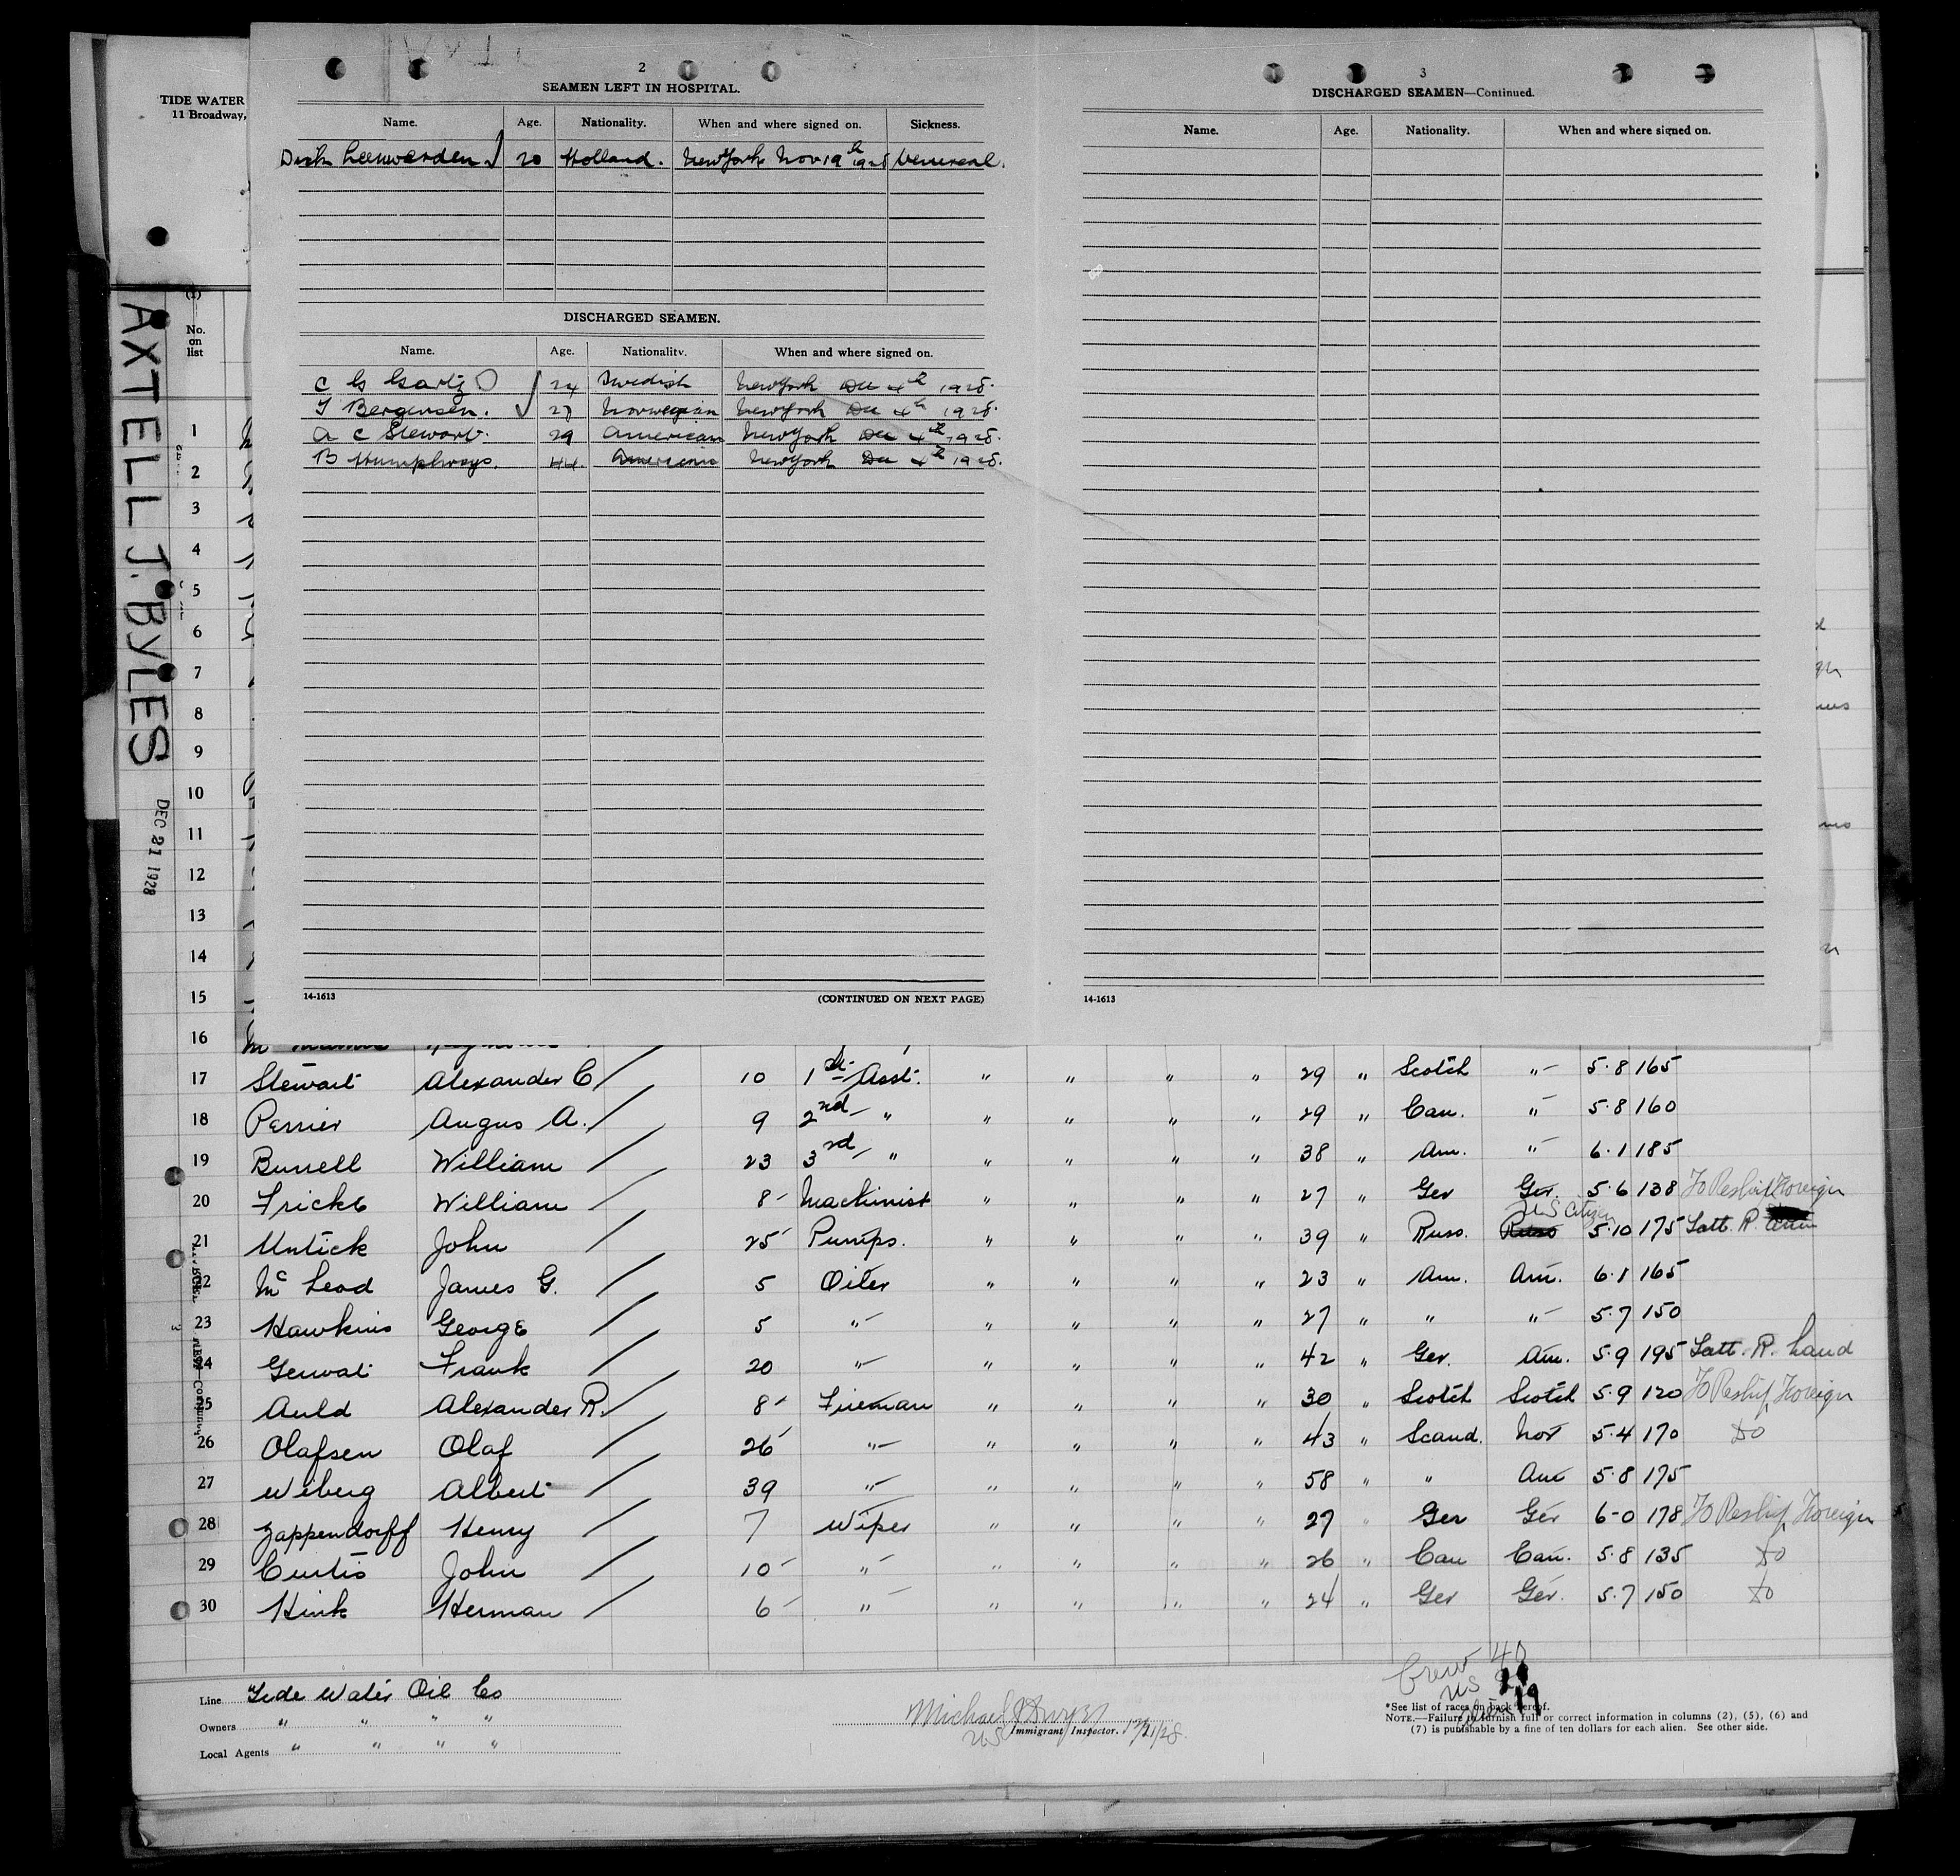 TIDE WATER
11 Broadway,
2
SEAMEN LEFT IN HOSPITAL.
Name. Age. Nationality. When and where signed on. Sickness.
Dirk Leenwarden 20 Holland. New York Nov 19th 1928 Venereal.
DISCHARGED SEAMEN.
Name. Age. Nationality. When and where signed on.
C G Gartz 24 Swedish New York Dec 4th 1928.
T Bergensen. 27 Norwegian New York Dec 4th 1928.
A C Stewart. 29 American New York Dec 4th 1928.
B Humphreys. 44. American New York Dec 4th 1928.
14-1613 (CONTINUED ON NEXT PAGE)
3
DISCHARGED SEAMEN—Continued.
Name. Age. Nationality. When and where signed on.
14-1613
AXTELL J. BYLES
DEC 21 1928
(1)
No.
on
list
1
2
3
4
5
6
7
8
9
10
11
12
13
14
15
16
17 Stewart Alexander C / 10 1st Asst. " " " " 29 " Scotch " 5.8 165
18 Perrier Augus A. / 9 2nd " " " " " 29 " Can. " 5.8 160
19 Burrell William / 23 3rd " " " " " 38 " Am. " 6.1 185
20 Fricke William / 8 Machinist " " " " 27 " Ger Ger. 5.6 138 To Reship Foreign
21 Untick John / 25 Pumps. " " " " 39 " Russ. Russ U.S Citizen 5.10 175 Latt. R.
22 Mc Leod James G. / 5 Oiler " " " " 23 " Am. Am. 6.1 165
23 Hawkins George / 5 " " " " " 27 " " " 5.7 150
24 Gerwat Frank / 20 " " " " " 42 " Ger. Am. 5.9 195 Latt. R. Land
25 Auld Alexander R. / 8 Fireman " " " " 30 " Scotch Scotch 5.9 120 To Reship Foreign
26 Olafsen Olaf / 26 " " " " " 43 " Scand. Nor 5.4 170 do
27 Wiberg Albert / 39 " " " " " 58 " " Am 5.8 175
28 Zappendorff Henry / 7 Wiper " " " " 27 " Ger Ger 6-0 178 To Reship Foreign
29 Curtis John / 10 " " " " " 26 " Can Can. 5.8 135 do
30 Hink Herman / 6 " " " " " 24 " Ger Ger. 5.7 150 do
Crew 40
US 21
Alien 19
Line Tide Water Oil Co
Owners " " " "
Local Agents " " " "
Michael J Dwyer
US Immigrant Inspector. 12/21/28.
*See list of races on back hereof.
NOTE.—Failure to furnish full or correct information in columns (2), (5), (6) and
(7) is punishable by a fine of ten dollars for each alien. See other side.